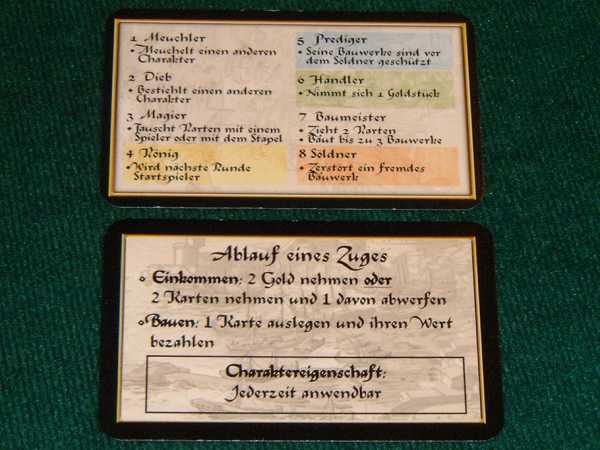 1 Meuchler
• Meuchelt einen anderen
Charakter
2 Dieb
• Bestiehlt einen anderen
Charakter
3 Magier
• Tauscht Karten mit einem
Spieler oder mit dem Stapel
4 König
• Wird nächste Runde
Startspieler
5 Prediger
• Seine Bauwerke sind vor
dem Söldner geschützt
6 Händler
• Nimmt sich 1 Goldstück
7 Baumeister
• Zieht 2 Karten
• Baut bis zu 3 Bauwerke
8 Söldner
• Zerstört ein fremdes
Bauwerk
Ablauf eines Zuges
• Einkommen: 2 Gold nehmen oder
2 Karten nehmen und 1 davon abwerfen
• Bauen: 1 Karte auslegen und ihren Wert
bezahlen
Charaktereigenschaft:
Jederzeit anwendbar